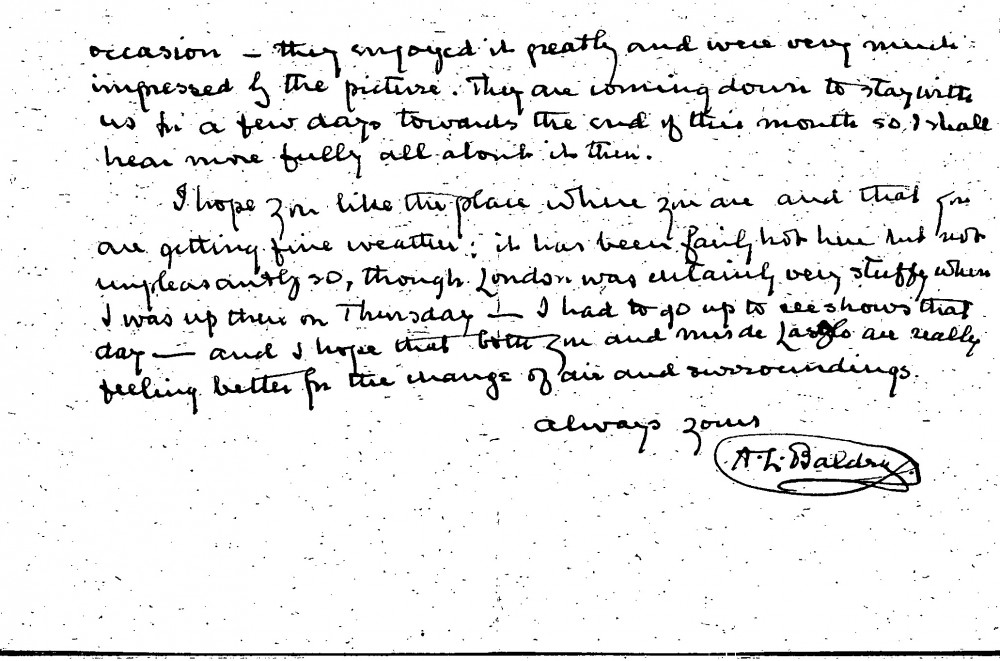 occasion – they enjoyed it greatly and were very much
impressed by the picture. They are coming down to stay with
us for a few days towards the end of this month so I shall
hear more fully all about it then.
I hope you like the place where you are and that you
are getting fine weather: it has been fairly hot here but not
unpleasantly so, though London was certainly very stuffy when
I was up there on Thursday – I had to go up to see shows that
day – and I hope that both you and Mrs de Laszlo are really
feeling better for the change of air and surroundings.
Always yours
A. L. Baldry.